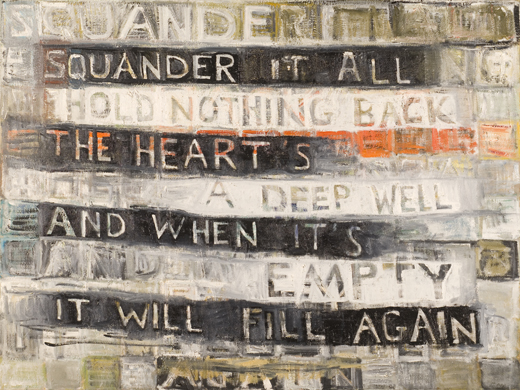 SQUANDER IT
SQUANDER IT ALL
HOLD NOTHING BACK
THE HEART'S
A DEEP WELL
AND WHEN IT'S
AND EMPTY
IT WILL FILL AGAIN
AGAIN